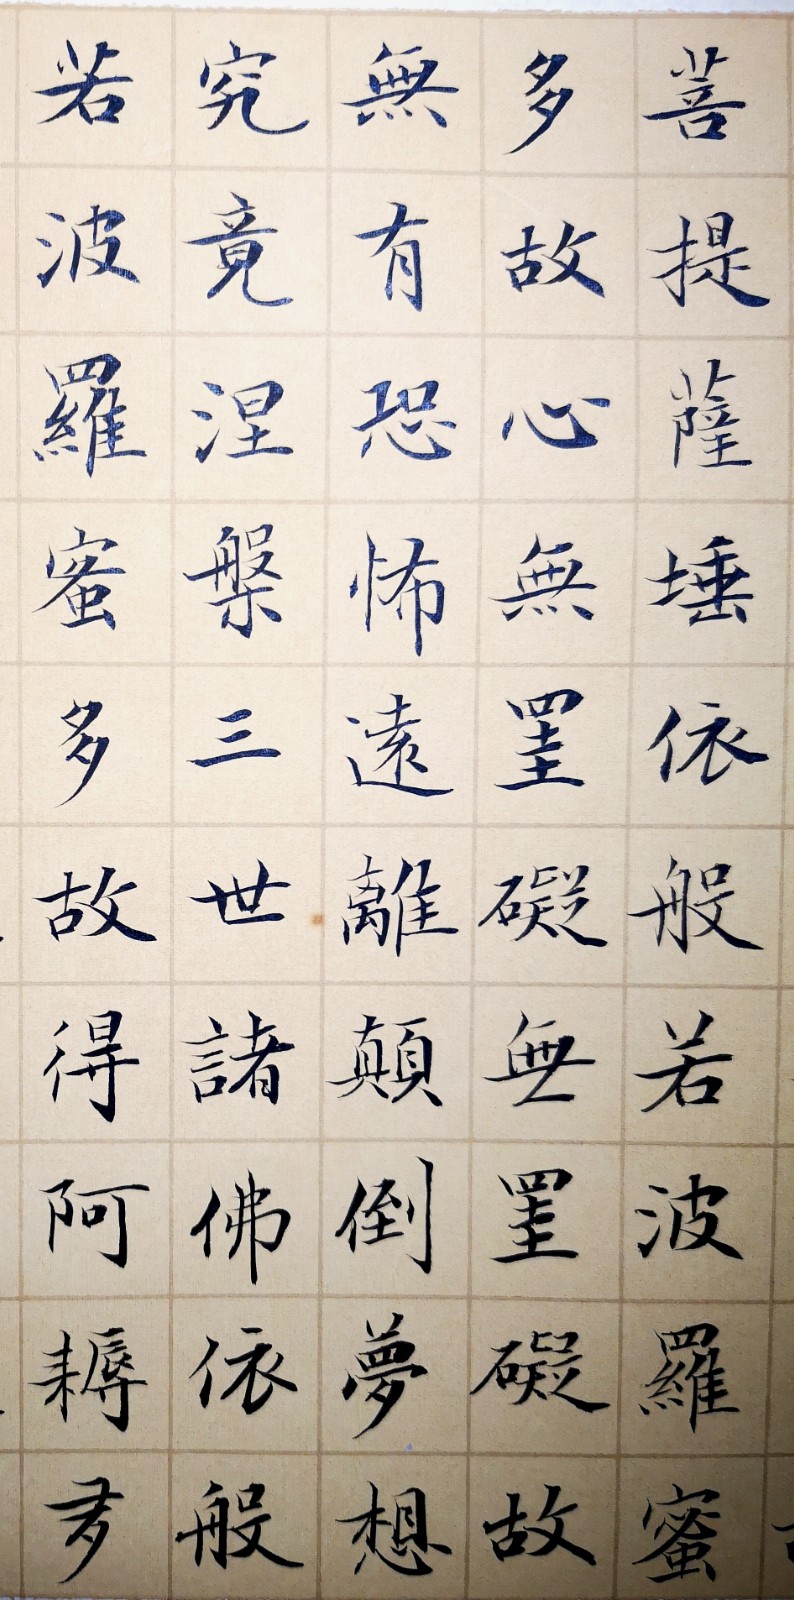 菩提薩埵依般若波羅蜜
多故心無罣礙無罣礙故
無有恐怖遠離顛倒夢想
究竟涅槃三世諸佛依般
若波羅蜜多故得阿耨多